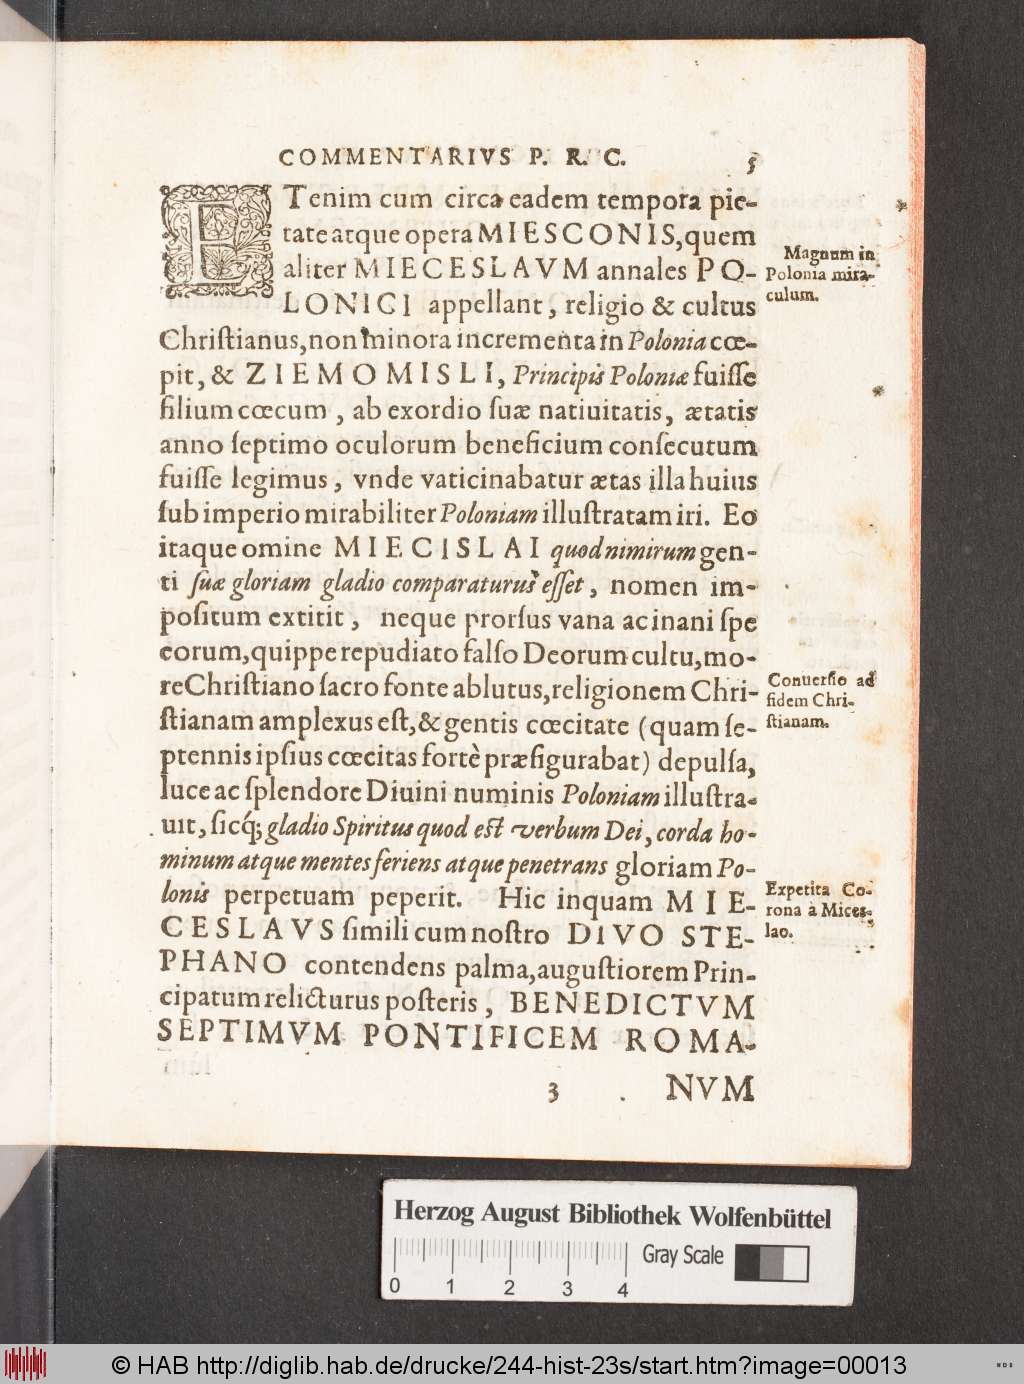 COMMENTARIVS P. R. C. 5
ETenim cum circa eadem tempora pie-
tate atque opera MIESCONIS, quem
aliter MIECESLAVM annales PO-
LONICI appellant, religio & cultus
Chriſtianus, non minora incrementa in Polonia cœ-
pit, & ZIEMOMISLI, Principis Poloniæ fuiſſe
filium cœcum, ab exordio ſuæ natiuitatis, ætatis
anno ſeptimo oculorum beneficium conſecutum
fuiſſe legimus, vnde vaticinabatur ætas illa huius
ſub imperio mirabiliter Poloniam illuſtratam iri. Eo
itaque omine MIECISLAI quod nimirum gen-
ti ſuæ gloriam gladio comparaturus eſſet, nomen im-
poſitum extitit, neque prorſus vana ac inani ſpe
eorum, quippe repudiato falſo Deorum cultu, mo-
re Chriſtiano ſacro fonte ablutus, religionem Chri-
ſtianam amplexus eſt, & gentis cœcitate (quam ſe-
ptennis ipſius cœcitas fortè præfigurabat) depulſa,
luce ac ſplendore Diuini numinis Poloniam illuſtra-
uit, ſicq́; gladio Spiritus quod eſt verbum Dei, corda ho-
minum atque mentes feriens atque penetrans gloriam Po-
lonis perpetuam peperit. Hic inquam MIE-
CESLAVS ſimili cum noſtro DIVO STE-
PHANO contendens palma, auguſtiorem Prin-
cipatum relicturus poſteris, BENEDICTVM
SEPTIMVM PONTIFICEM ROMA-
3 NVM
Magnum in
Polonia mira-
culum.
Conuerſio ad
fidem Chri-
ſtianam.
Expetita Co-
rona à Mieces-
lao.
Herzog August Bibliothek Wolfenbüttel
Gray Scale
0 1 2 3 4
© HAB http://diglib.hab.de/drucke/244-hist-23s/start.htm?image=00013